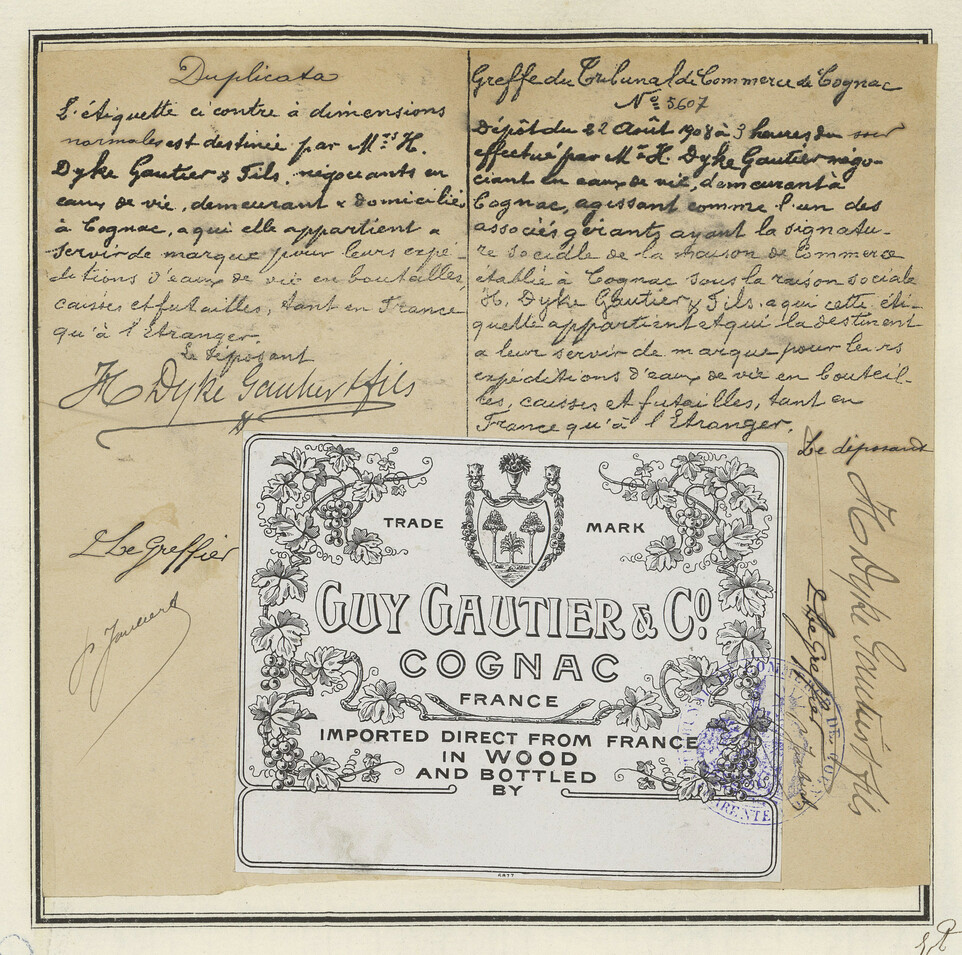 Duplicata
L'étiquette ci contre à dimensions
normales est destinée par Mrs H.
Dyke Gautier & Fils, négociants en
eaux de vie, demeurant & domiciliés
à Cognac, a qui elle appartient a
servir de marque pour leurs expé-
ditions d'eaux de vie en bouteilles,
caisses et futailles, tant en France
qu'à l'Etranger.
Le déposant
H Dyke Gautier & fils
Le Greffier
Greffe du Tribunal de Commerce de Cognac
No 5607
Dépôt du 22 Août 1908 à 3 heures du soir
effectué par Mr H. Dyke Gautier négo-
ciant en eaux de vie, demeurant à
Cognac, agissant comme l'un des
associés gérants ayant la signatu-
re sociale de la maison de Commerce
établie à Cognac sous la raison sociale
H. Dyke Gautier & Fils. a qui cette éti-
quette appartient et qui la destinent
a leur servir de marque pour leurs
expéditions d'eaux de vie en bouteil-
les, caisses et futailles, tant en
France qu'à l'Etranger.
Le déposant
H Dyke Gautier & fils
Le Greffier
TRADE MARK
GUY GAUTIER & Co.
COGNAC
FRANCE
IMPORTED DIRECT FROM FRANCE
IN WOOD
AND BOTTLED
BY